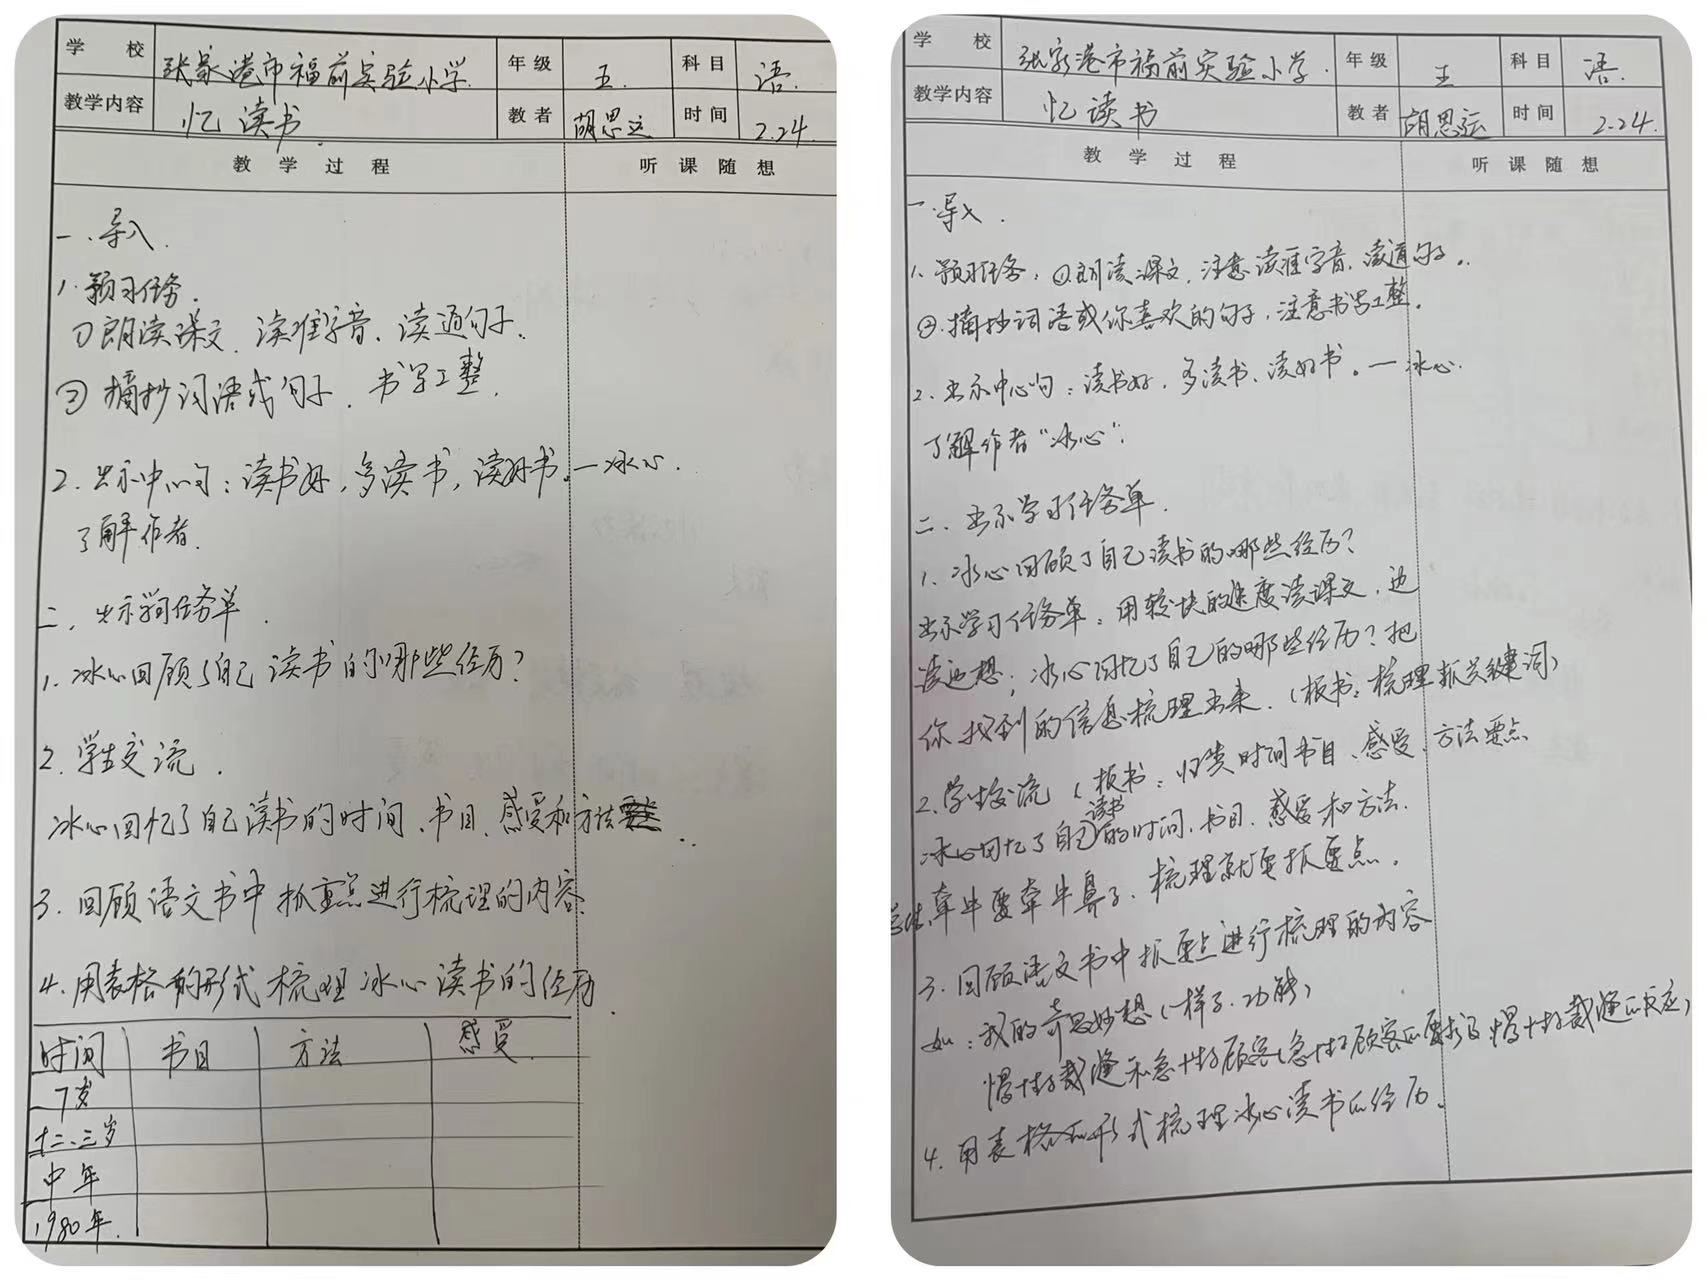 学 校 张家港市福前实验小学. 年级 五. 科目 语.
教学内容 忆读书. 教者 胡思运 时间 2.24.
教 学 过 程 听 课 随 想
一.导入.
1.预习任务.
①朗读课文、读准字音、读通句子.
② 摘抄词语或句子、书写工整.
2.出示中心句:读书好,多读书,读好书。—冰心.
了解作者.
二,出示学习任务单.
1.冰心回顾了自己读书的哪些经历?
2.学生交流.
冰心回忆了自己读书的时间、书目、感受和方法
3.回顾语文书中抓重点进行梳理的内容.
4.用表格的形式梳理冰心读书的经历.
时间 书目 方法 感受.
7岁
十二、三岁
中年
1980年.
学 校 张家港市福前实验小学. 年级 五 科目 语.
教学内容 忆读书 教者 胡思运 时间 2.24.
教 学 过 程 听 课 随 想
一.导入.
1.预习任务:①朗读课文,注意读准字音,读通句子。
②.摘抄词语或你喜欢的句子,注意书写工整。
2.出示中心句:读书好,多读书、读好书。—冰心.
了解作者“冰心”.
二.出示学习任务单.
1.冰心回顾了自己读书的哪些经历?
出示学习任务单:用较快的速度读课文,边
读边想:冰心回忆了自己的哪些经历?把
你找到的信息梳理出来.(板书:梳理抓关键词)
2.学生交流(板书:归类时间书目、感受、方法要点
冰心回忆了自己读书的时间、书目、感受和方法.
总结,牵牛要牵牛鼻子,梳理就要抓要点.
3.回顾语文书中抓要点进行梳理的内容
如:我的奇思妙想(样子.功能)
慢性子裁缝和急性子顾客(急性子顾客的要求与慢性子裁缝的反应)
4.用表格的形式梳理冰心读书的经历。